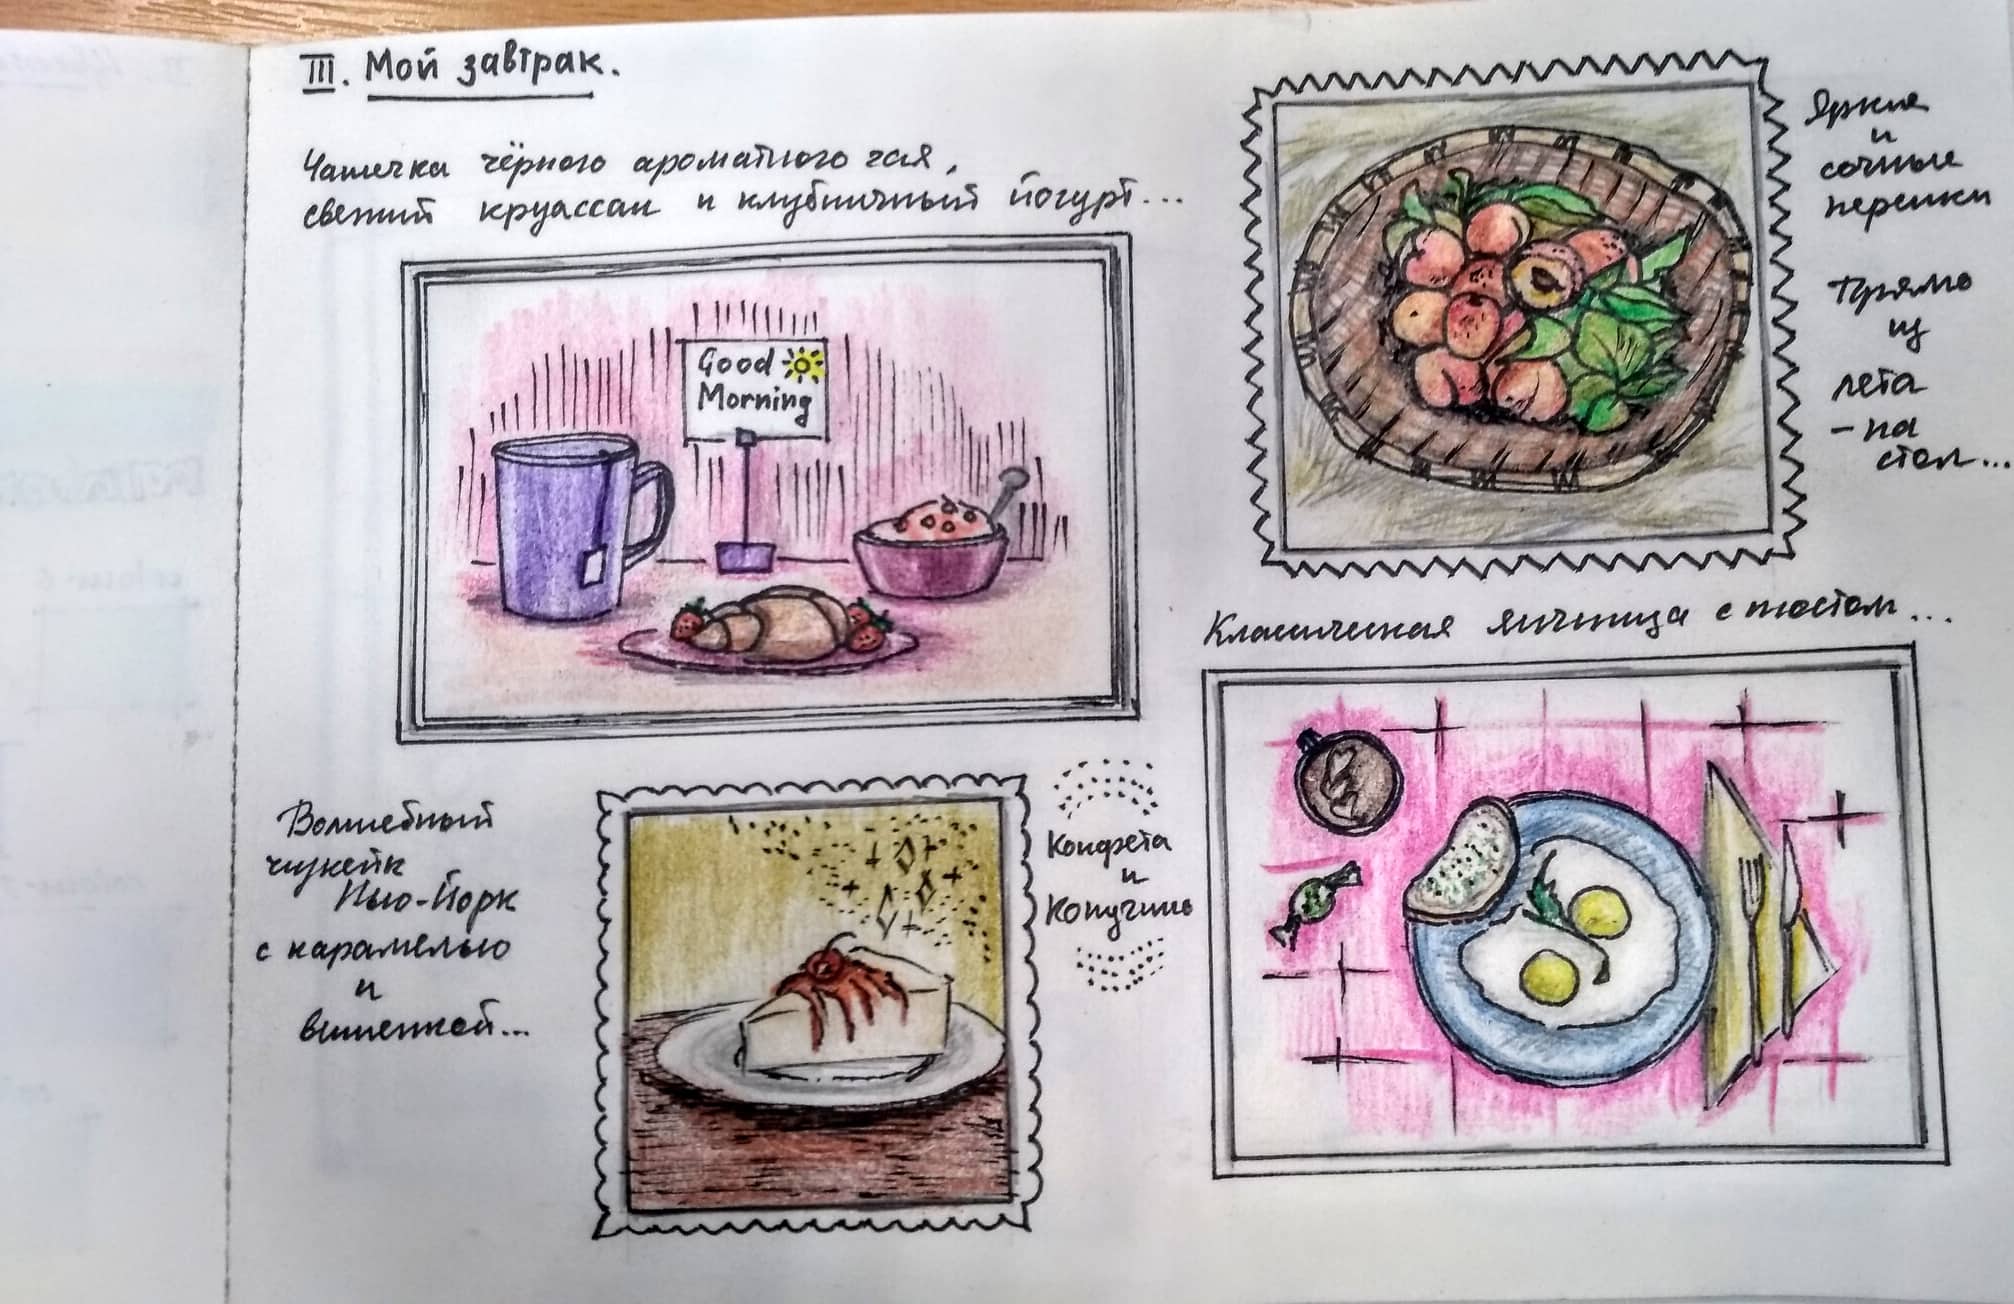 III. Мой завтрак.
Чашечка чёрного ароматного чая,
свежий круассан и клубничный йогурт...
Good
Morning
Яркие
и
сочные
персики
Прямо
из
лета
- на
стол...
Классическая яичница с тостом...
Волшебный
чизкейк
Нью-Йорк
с карамелью
и
вишенкой...
Конфета
и
Капучино